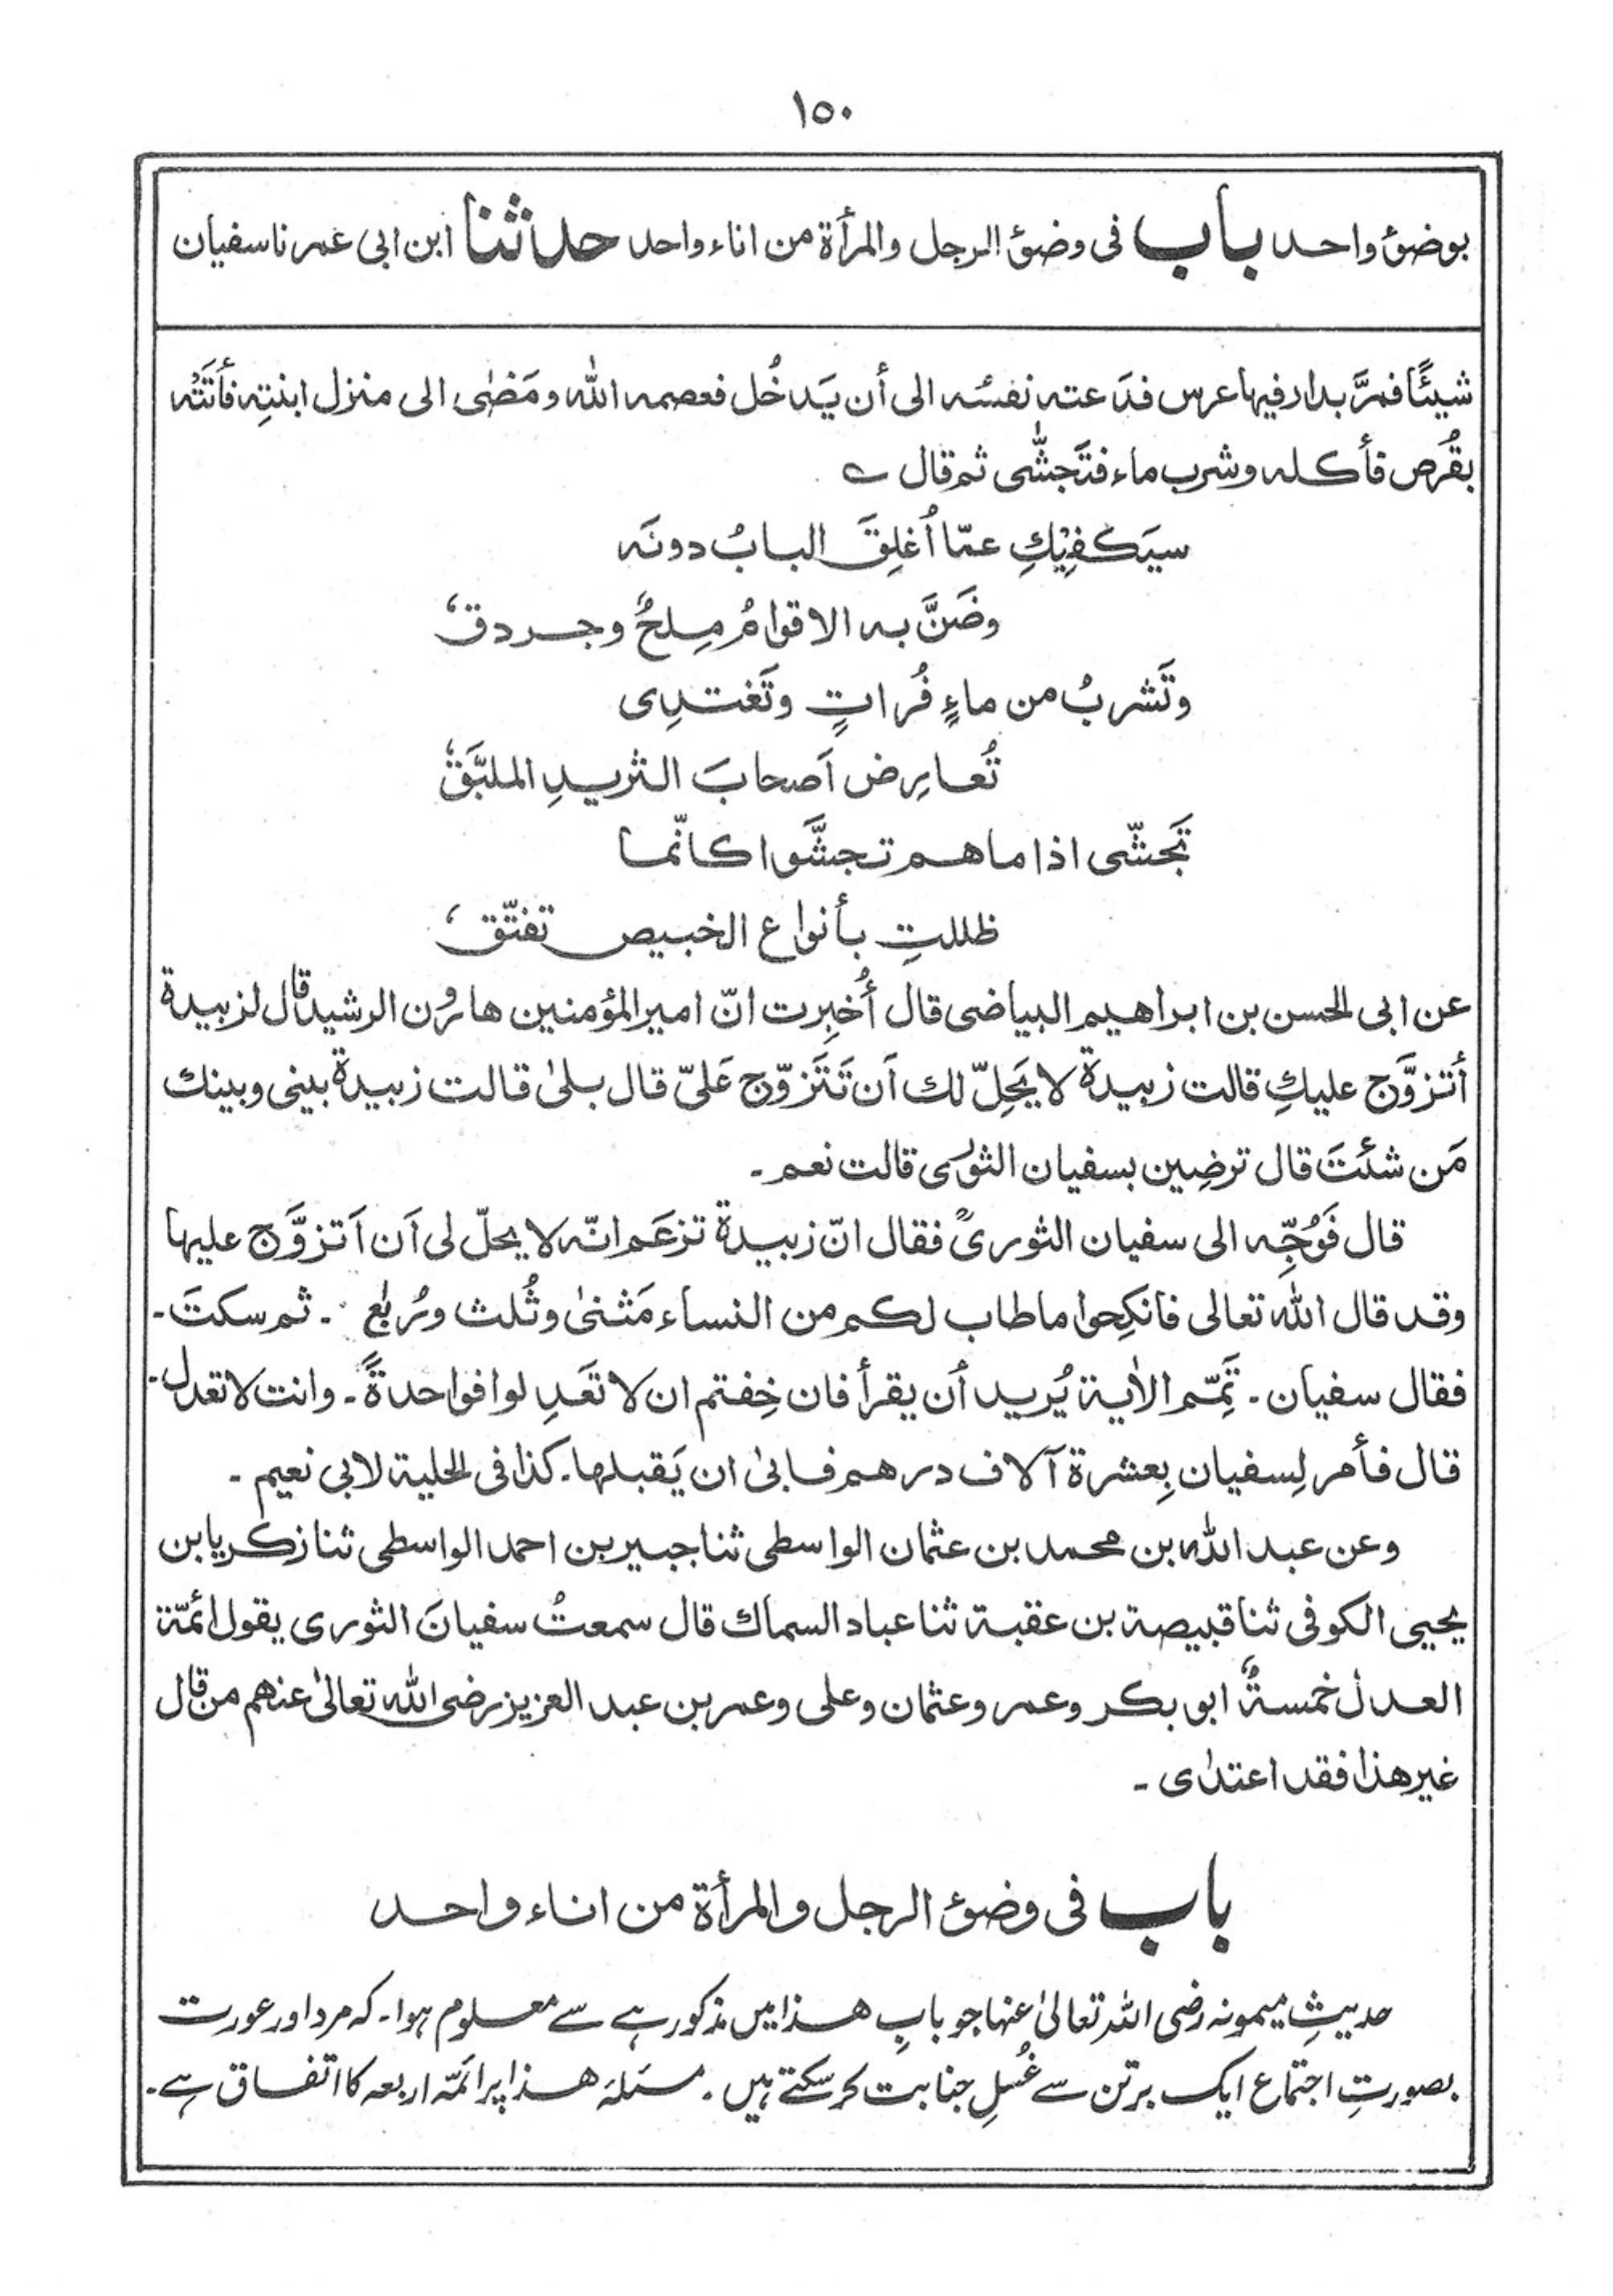 ١٥٠
بوضوٗ واحد باب فی وضوٗ الرجل والمرأة من اناء واحد حدثنا ابن ابی عمر نا سفیان
شیئًا فمرَّ بدار فیھا عرس فدَعته نفسُه الی أن یَدخُل فعصمه اللّٰه ومَضٰی الی منزل ابنتِه فأتَتْه
بقُرص فأکله وشرب ماء فتَجشّٰی ثم قال ؎
سیَکفِیْكِ عمّا أُغلِقَ البابُ دونَه
وضَنَّ به الاقوامُ مِلحٌ وجردق،
وتَشربُ من ماءٍ فُراتٍ وتَغتدِی
تُعارِض اَصحابَ الثریدِ الملبَّقِ،
تَجَشّی اذا ما هم تجشَّوا کانّما
ظللتِ بأنواع الخبیص تفتّق،
عن ابی الحسن بن ابراهیم البیاضی قال أُخبِرت انّ امیر المؤمنین هارُون الرشید قال لزبیدة
أتزوَّج علیكِ قالت زبیدة لا یَحِلّ لك اَن تَتَزوّج عَلیّ قال بلیٰ قالت زبیدة بینی وبینك
مَن شئتَ قال ترضِین بسفیان الثوری قالت نعم ۔
قال فَوُجِّه الی سفیان الثوریؒ فقال انّ زبیدة تزعَم انّه لا یحلّ لی اَن اَتزوَّج علیها
وقد قال اللّٰه تعالی فانکِحوا ما طاب لکم من النساء مَثنیٰ وثُلث ورُبٰع ۔ ثم سکتَ ۔
فقال سفیان ۔ تَمِّم الاٰیة یُرید أن یقرأ فان خِفتم ان لا تَعدِلوا فواحدةً ۔ وانت لا تعدل ۔
قال فأمر لِسفیان بِعشرة آلاف درهم فابیٰ ان یَقبلها ۔ کذا فی الحلیة لابی نعیم ۔
وعن عبد اللّٰه بن محمد بن عثمان الواسطی ثنا جبیر بن احمد الواسطی ثنا زکریا بن
یحیی الکوفی ثنا قبیصة بن عقبة ثنا عباد السماك قال سمعتُ سفیانَ الثوری یقول ائمّة
العدل خمسةٌ ابو بکر وعمر وعثمان وعلی وعمر بن عبد العزیز رضی اللّٰه تعالیٰ عنهم من قال
غیر هٰذا فقد اعتدٰی ۔
باب فی وضوٗ الرجل والمرأة من اناء واحد
حدیثِ میمونہ رضی اللہ تعالیٰ عنہا جو بابِ ھذا میں مذکور ہے سے معلوم ہوا ۔ کہ مرد اور عورت
بصورتِ اجتماع ایک برتن سے غُسلِ جنابت کرسکتے ہیں ۔ مسئلہ ھذا پر ائمّہ اربعہ کا اتفاق ہے ۔